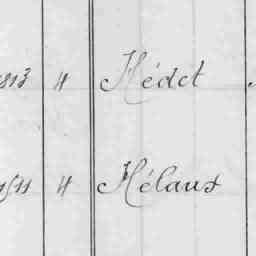 1813 4 Hédet
1811 4 Hélaux